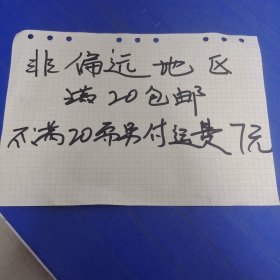 非偏远地区
满20包邮
不满20需另付运费7元